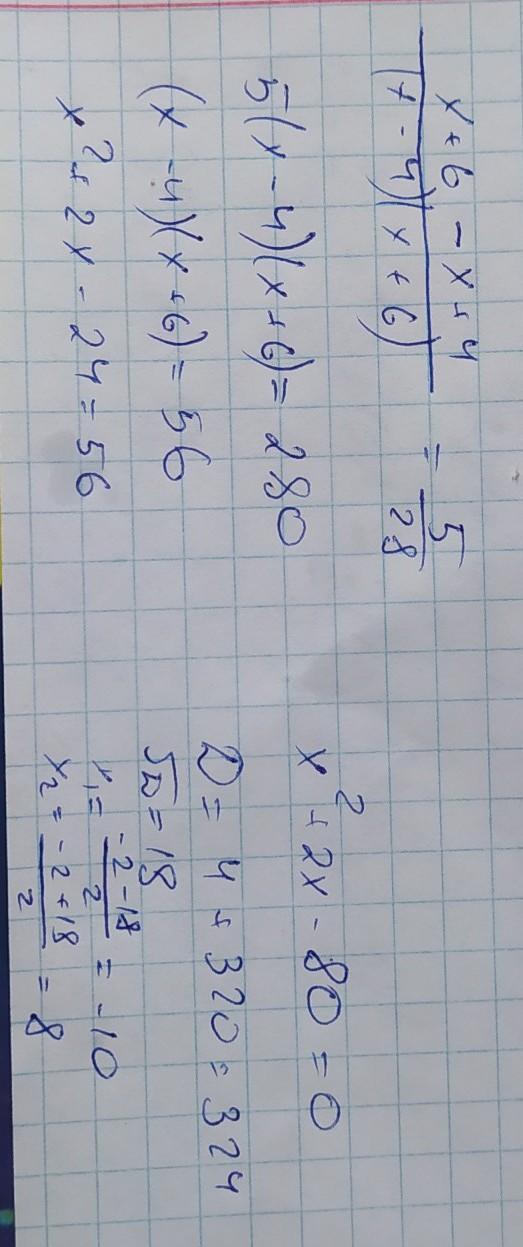 (x + 6 - x + 4) / ((x - 4)(x + 6)) = 5/28
5(x - 4)(x + 6) = 280
(x - 4)(x + 6) = 56
x² + 2x - 24 = 56
x² + 2x - 80 = 0
D = 4 + 320 = 324
√D = 18
x₁ = (-2 - 18)/2 = -10
x₂ = (-2 + 18)/2 = 8